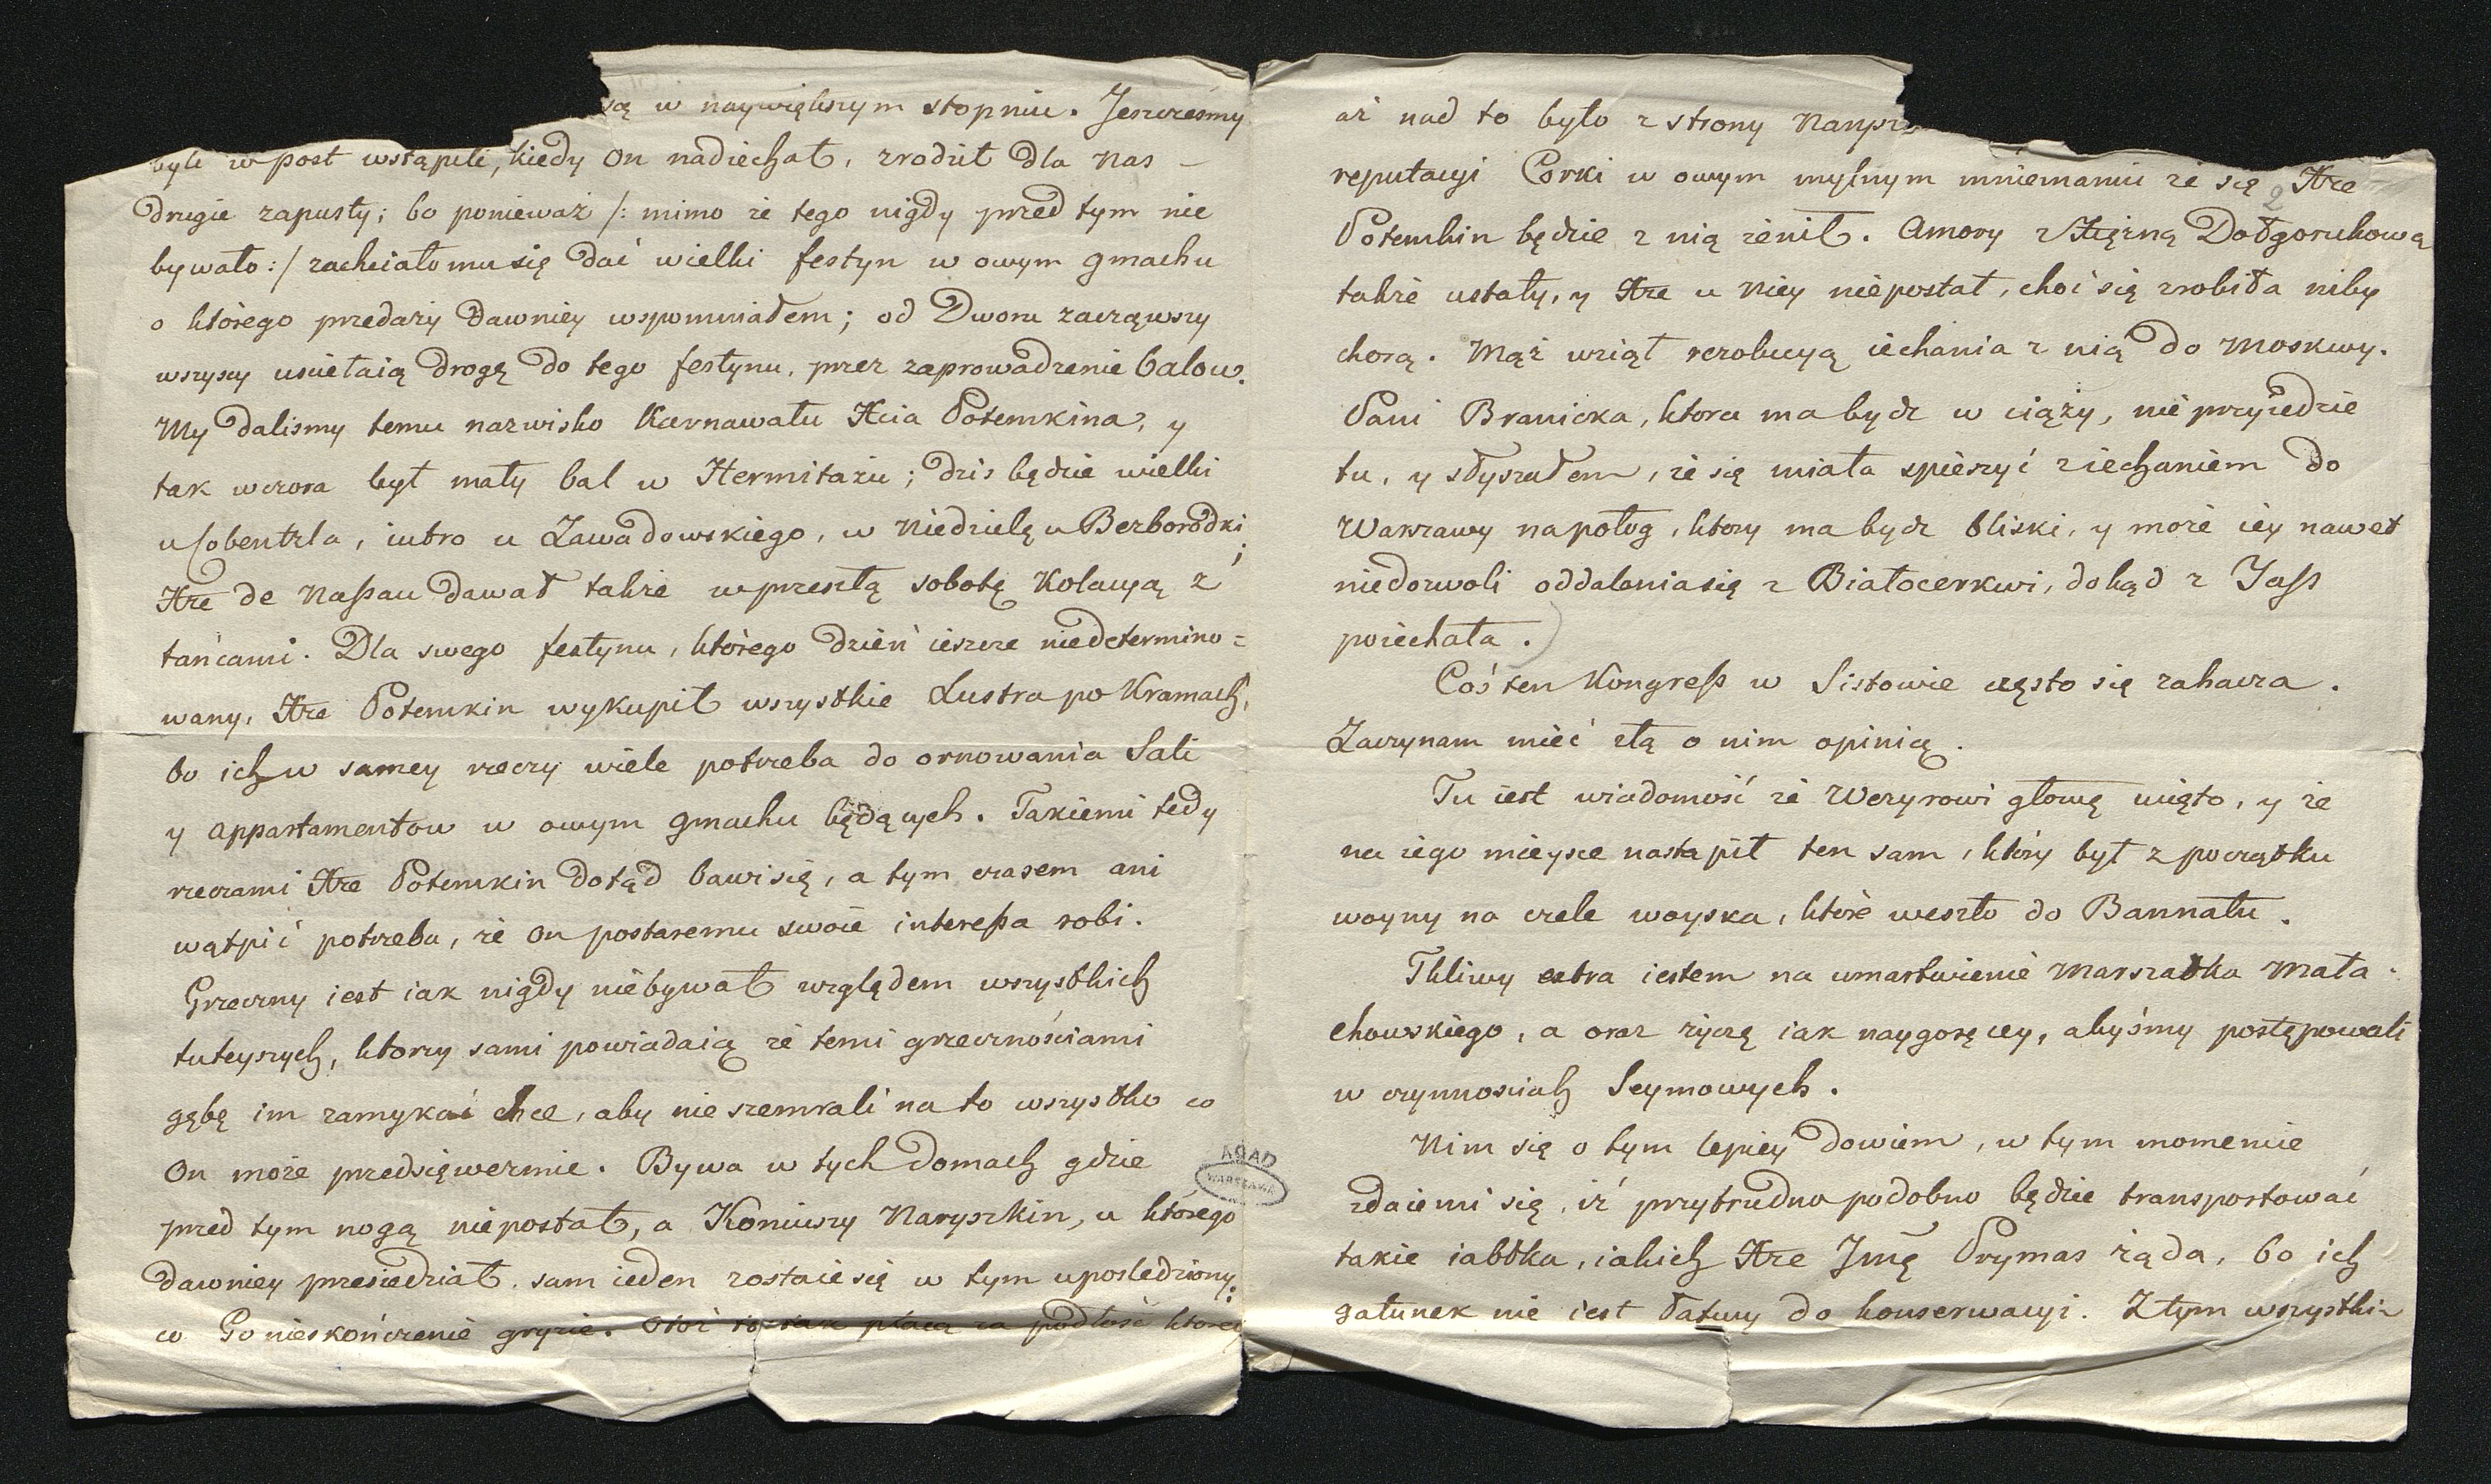 są w naywiększym stopniu. Jeszcześmy
byli w post wstąpili, kiedy On nadiechał, zrodził dla nas –
drugie zapusty; bo ponieważ /: mimo że tego nigdy przed tym nie
bywało :/ zachciało mu się dać wielki festyn w owym gmachu
o którego przedaży dawniey wspomniałem; od Dworu zacząwszy
wszyscy uściełaią drogę do tego festynu, przez zaprowadzenie balow.
My dalismy temu nazwisko Karnawału Xcia Potemkina, y
tak wczora był mały bal w Hermitażu; dzis będzie wielki
u Cobentzla, iutro u Zawadowskiego, w Niedzielę u Bezborodki;
Xże de Naßau dawał także w przeszłą sobotę Kolacyą z
tańcami. Dla swego festynu, którego dzień ieszcze niedetermino=
wany, Xże Potemkin wykupił wszystkie Lustra po Kramach,
bo ich w samey rzeczy wiele potrzeba do ornowania Sali
y appartamentow w owym gmachu będących. Takiemi tedy
rzeczami Xże Potemkin dotąd bawi się, a tym czasem ani
wątpić potrzeba, że On postaremu swoie intereßa robi.
Grzeczny iest iak nigdy niebywał względem wszystkich
tuteyszych, ktorzy sami powiadaią że temi grzecznościami
gębę im zamykać chce, aby nie szemrali na to wszystko co
On może przedsięweźmie. Bywa w tych Domach gdzie
przed tym nogą niepostał, a Koniuszy Naryszkin, u którego
dawniey przesiedział, sam ieden zostaie się w tym upośledziony:
co Go nieskończenie gryzie. Otoż to tak płacą za podłość ktorey
aż nad to było z strony Narysz
reputacyi Corki w owym mylnym mniemaniu że się Xże
Potemkin będzie z nią żenił. Amory z Xiężną Dołgorukową
także ustały, y Xże u Niey niepostał, choć się zrobiła niby
chorą. Mąż wziął rezolucyą iechania z nią do Moskwy.
Pani Branicka, ktora ma bydz w ciąży, nie przyiedzie
tu, y słyszałem, że się miała spieszyć z iechaniem do
Warszawy na połog, ktory ma bydz bliski, y może iey nawet
niedozwoli oddalenia się z Białocerkwi, dokąd z Jaß
poiechała.
Cóś ten Kongreß w Sistowie często się zahacza.
Zaczynam mieć złą o nim opinią.
Tu iest wiadomość że Wezyrowi głowę ucięto, y że
na iego mieysce nastąpił ten sam, który był z początku
woyny na czele woyska, które weszło do Bannatu.
Tkliwy extra iestem na umartwienie Marszałka Mała=
chowskiego, a oraz życzę iak naygoręcey, abyśmy postępowali
w czynnosciach Seymowych.
Nim się o tym lepiey dowiem, w tym momencie
zdaie mi się, iż przytrudno podobno będzie transportować
takie iabłka, iakich Xże Jmę Prymas żąda, bo ich
gatunek nie iest łatwy do konserwacyi. Z tym wszystkim
2
AGAD
WARSZAWA